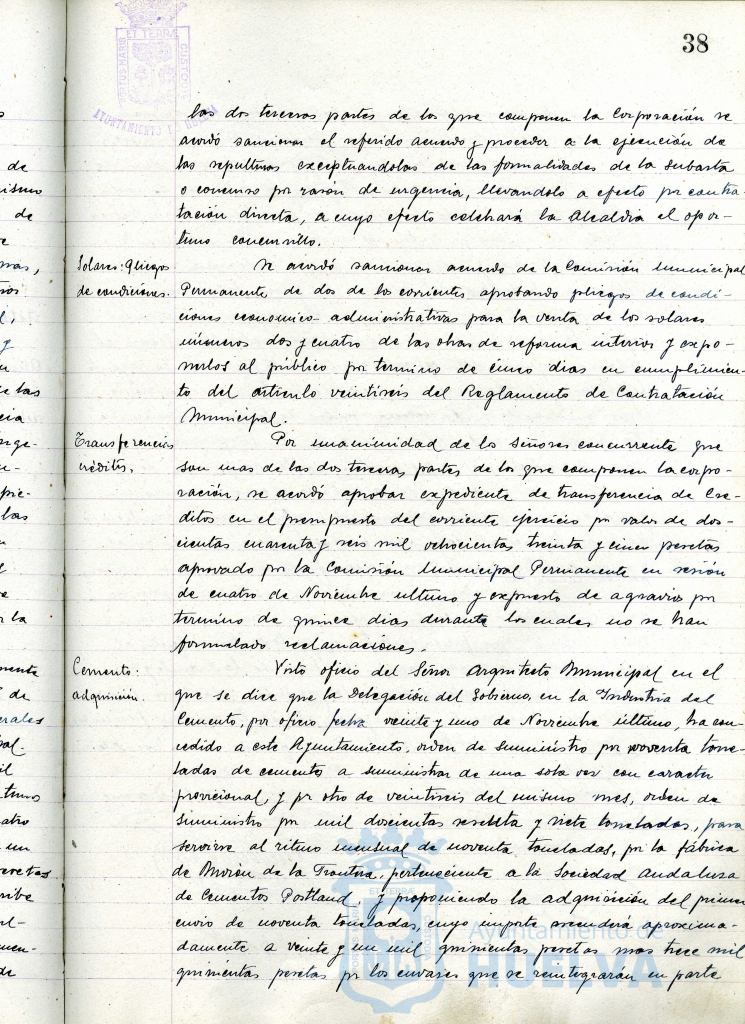 38
las dos terceras partes de los que componen la Corporación se
acordó sancionar el referido acuerdo y proceder a la ejecución de
las sepulturas exceptuandolas de las formalidades de la subasta
o concurso por razón de urgencia, llevandolo a efecto por contra-
tación directa, a cuyo efecto celebrará la Alcaldia el opor-
tuno concursillo.
Solares: Pliegos
de condiciones.
Se acordó sancionar acuerdo de la Comisión Municipal
Permanente de dos de los corrientes aprobando pliegos de condi-
ciones economico-administrativas para la venta de los solares
números dos y cuatro de las obras de reforma interior y expo-
nerlos al público por termino de cinco dias en cumplimien-
to del articulo veintiseis del Reglamento de Contratación
Municipal.
Transferencias
créditos.
Por unanimidad de los Señores concurrente que
son mas de las dos terceras partes de los que componen la corpo-
ración, se acordó aprobar expediente de transferencia de Cre-
ditos en el presupuesto del corriente ejercicio por valor de dos-
cientas cuarenta y seis mil ochocientas treinta y cinco pesetas
aprovado por la Comisión Municipal Permanente en sesión
de cuatro de Noviembre ultimo y expuesto de agravios por
termino de quince dias durante los cuales no se han
formulado reclamaciones.
Cemento:
adquisición.
Visto oficio del Señor Arquitecto Municipal en el
que se dice que la Delegación del Gobierno, en la Industria del
Cemento, por oficio fecha veinte y uno de Noviembre último, ha con-
cedido a este Ayuntamiento, orden de suministro por noventa tone-
ladas de cemento a suministrar de una sola vez con caracter
provicional, y por otro de veintiseis del mismo mes, orden de
suministro por mil doscientas sesenta y siete toneladas, para
servirse al ritmo mensual de noventa toneladas, por la fábrica
de Morón de la Frontera, perteneciente a la Sociedad Andaluza
de Cementos Postland, y proponiendo la adquisición del primer
envio de noventa toneladas, cuyo importe ascenderá aproxima-
damente a veinte y un mil quinientas pesetas mas trece mil
quinientas pesetas por los envases que se reintegrarán en parte
Ayuntamiento de
HUELVA